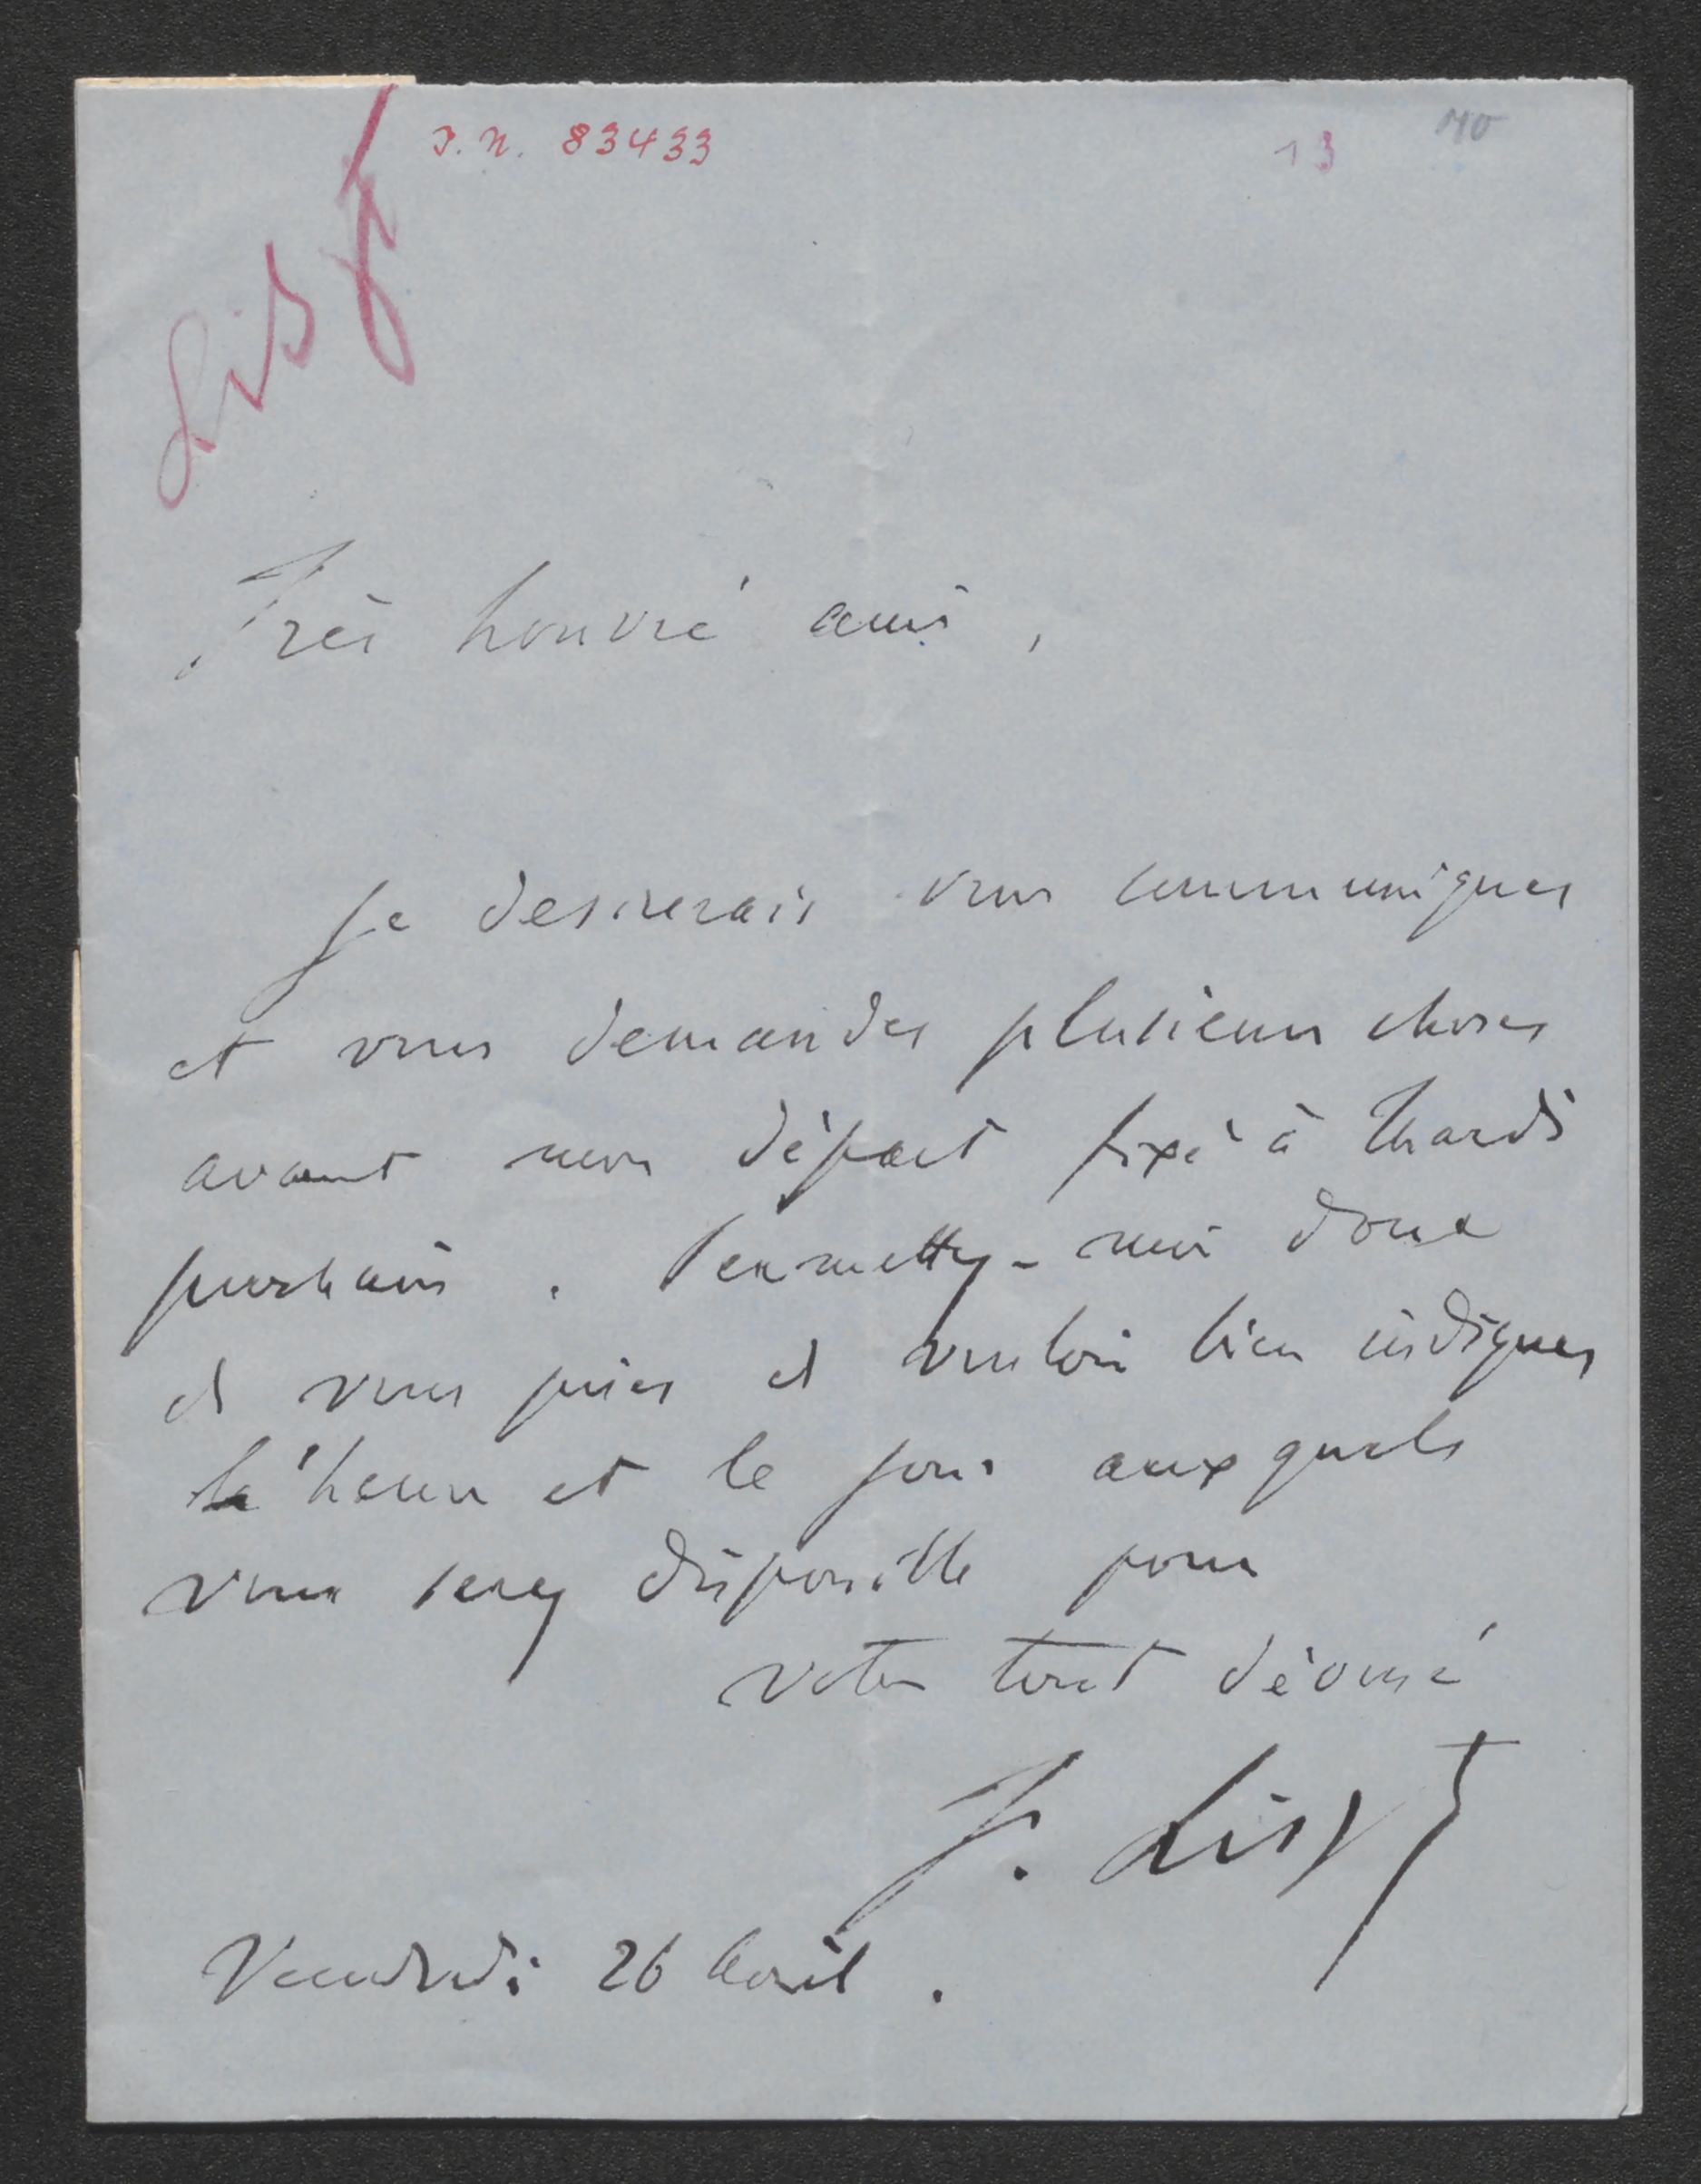 Liszt
I. N. 83433
13
Très honoré ami,
Je desirerais vous communiquer
et vous demander plusieurs choses
avant mon départ fixé à Mardi
prochain. Permettez-moi donc
de vous prier de vouloir bien indiquer
l'heure et le jour auxquels
vous serez disponible pour
votre tout dévoué
F. Liszt
Vendredi 26 Avril.